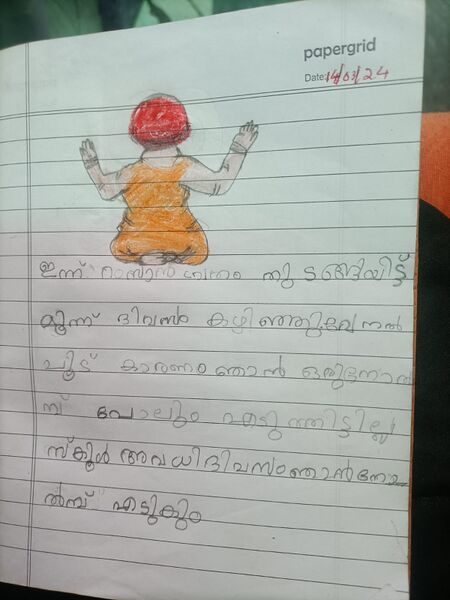 papergrid
Date: 14/03/24
ഇന്ന് റംസാൻ വ്രതം തുടങ്ങിയിട്ട്
മൂന്ന് ദിവസം കഴിഞ്ഞു വേനൽ
ചൂട് കാരണം ഞാൻ ഒരു നോ
ന്പ് പോലും എടുത്തിട്ടില്ല
സ്കൂൾ അവധി ദിവസം ഞാൻ നോ
ൽമ്പ് എടുകും